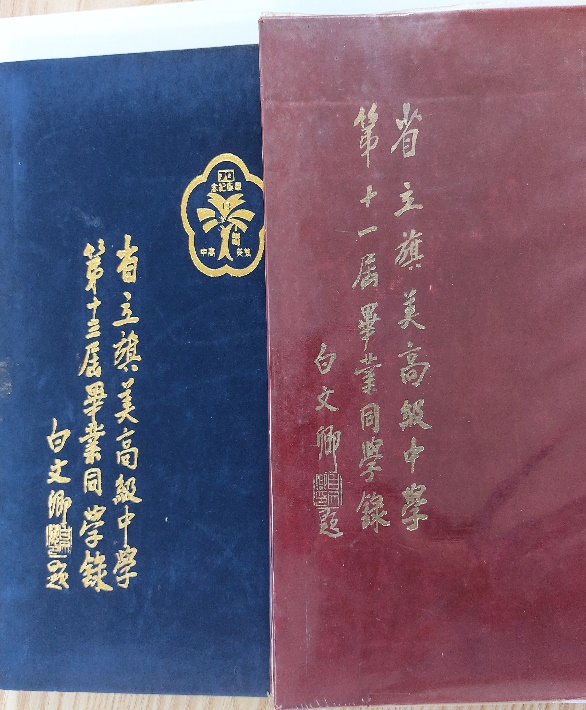 省立旗美高級中學
第十三屆畢業同學錄
白文卿題
旗美高中
省立旗美高級中學
第十一屆畢業同學錄
白文卿題